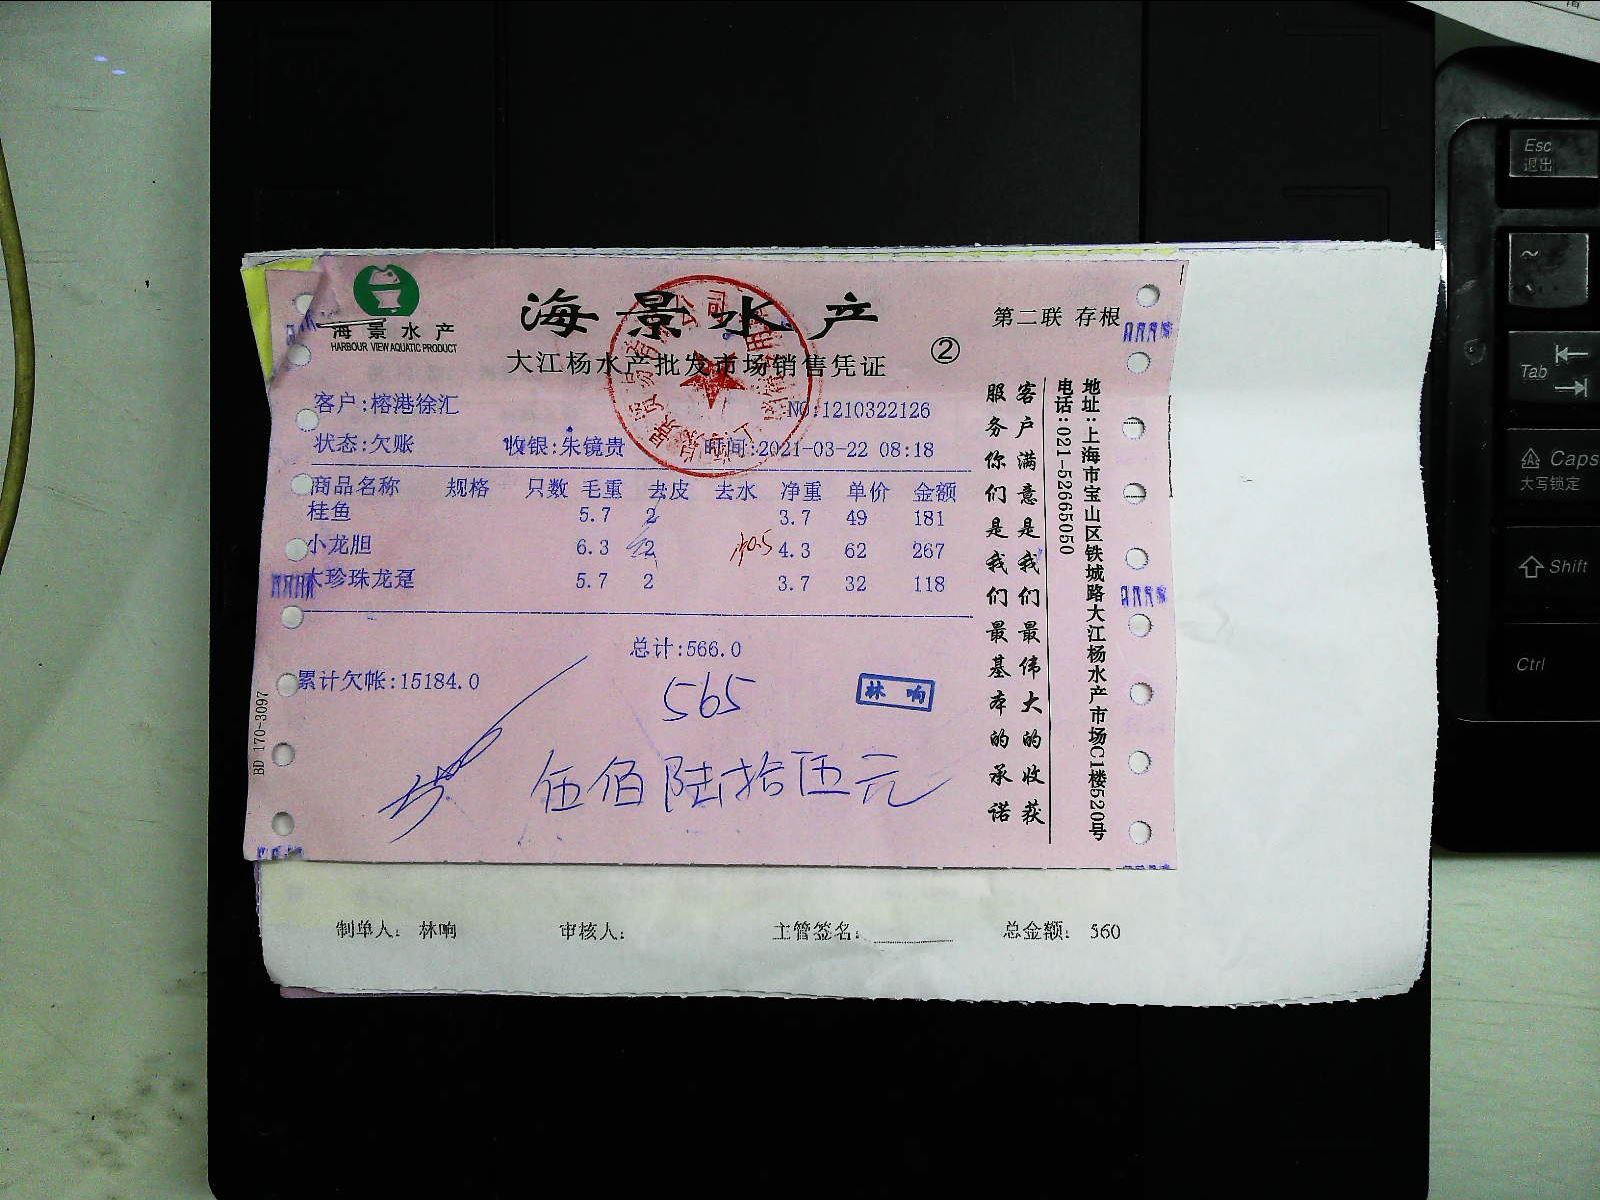 海景水产
HARBOUR VIEW AQUATIC PRODUCT
海景水产
第二联 存根
大江杨水产批发市场销售凭证
②
客户:榕港徐汇
NO:1210322126
状态:欠账 收银:朱镜贵 时间:2021-03-22 08:18
商品名称 规格 只数 毛重 去皮 去水 净重 单价 金额
桂鱼 5.7 2 3.7 49 181
小龙胆 6.3 2 4.3 62 267
大珍珠龙趸 5.7 2 3.7 32 118
总计:566.0
累计欠帐:15184.0
565
林响
伍佰陆拾伍元
BD 170-3097
客户满意是我们最伟大的收获
服务你们是我们最基本的承诺
地址:上海市宝山区铁城路大江杨水产市场C1楼520号
电话:021-52665050
制单人: 林响 审核人: 主管签名: 总金额: 560
Esc
退出
~
Tab
Caps
大写锁定
Shift
Ctrl